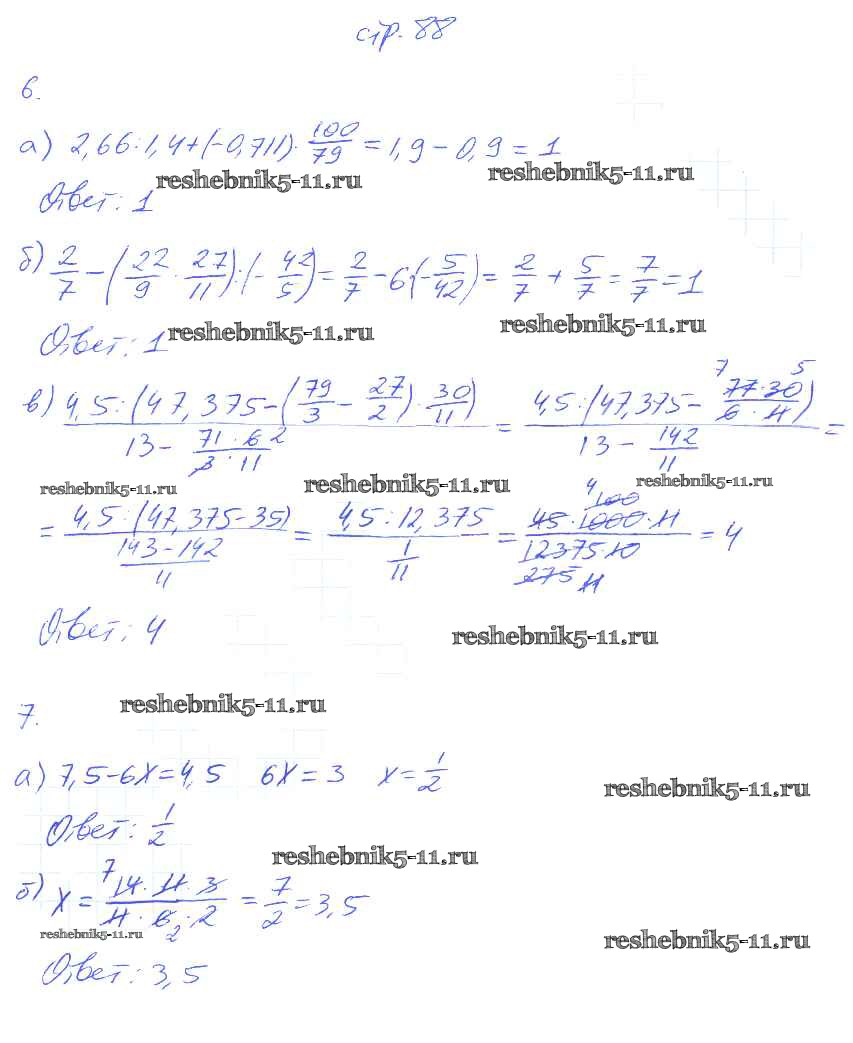 стр. 88
6.
а) 2,66:1,4+(-0,711)·100/79=1,9-0,9=1
reshebnik5-11.ru reshebnik5-11.ru
Ответ: 1
б) 2/7-(22/9·27/11):(-42/5)=2/7-6·(-5/42)=2/7+5/7=7/7=1
Ответ: 1 reshebnik5-11.ru reshebnik5-11.ru
в) (4,5:(47,375-(79/3-27/2)·30/11))/(13-(71·6 2)/(3·11))=(4,5:(47,375-(7 77·30 5)/(6·11)))/(13-142/11)=
reshebnik5-11.ru reshebnik5-11.ru reshebnik5-11.ru
=(4,5:(47,375-35))/((143-142)/11)=(4,5:12,375)/(1/11)=(4 100 45·1000·11)/(12375·10 275 11)=4
Ответ: 4 reshebnik5-11.ru
7. reshebnik5-11.ru
а) 7,5-6x=4,5 6x=3 x=1/2
reshebnik5-11.ru
Ответ: 1/2
reshebnik5-11.ru
б) x=(7 14·11·3)/(11·6 2·2)=7/2=3,5
reshebnik5-11.ru reshebnik5-11.ru
Ответ: 3,5